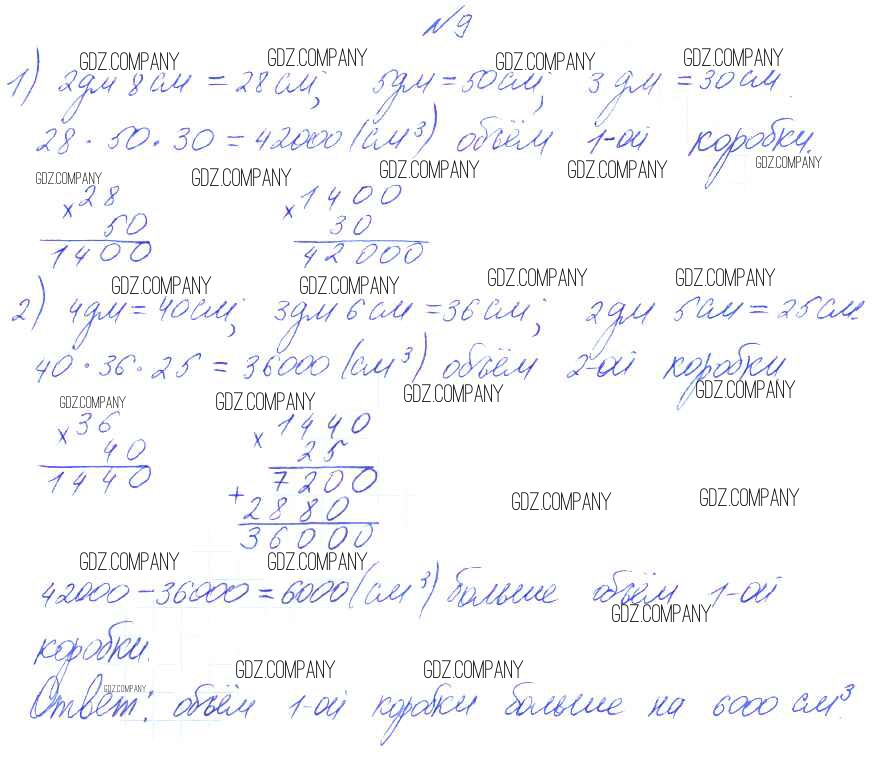 №9
GDZ.COMPANY GDZ.COMPANY GDZ.COMPANY GDZ.COMPANY
1) 2дм 8см = 28см; 5дм = 50см; 3 дм = 30см.
28 · 50 · 30 = 42000 (см³) объём 1-ой коробки.
GDZ.COMPANY GDZ.COMPANY GDZ.COMPANY GDZ.COMPANY GDZ.COMPANY
× 28 × 1400
50 30
1400 42000
GDZ.COMPANY GDZ.COMPANY GDZ.COMPANY GDZ.COMPANY
2) 4дм = 40см; 3дм 6см = 36см; 2дм 5см = 25см.
40 · 36 · 25 = 36000 (см³) объём 2-ой коробки
GDZ.COMPANY GDZ.COMPANY GDZ.COMPANY GDZ.COMPANY
× 36 × 1440
40 25
1440 7200
+ 2880
36000
GDZ.COMPANY GDZ.COMPANY
GDZ.COMPANY GDZ.COMPANY
42000 – 36000 = 6000 (см³) больше объём 1-ой
GDZ.COMPANY
коробки.
GDZ.COMPANY GDZ.COMPANY GDZ.COMPANY
Ответ: объём 1-ой коробки больше на 6000 см³.